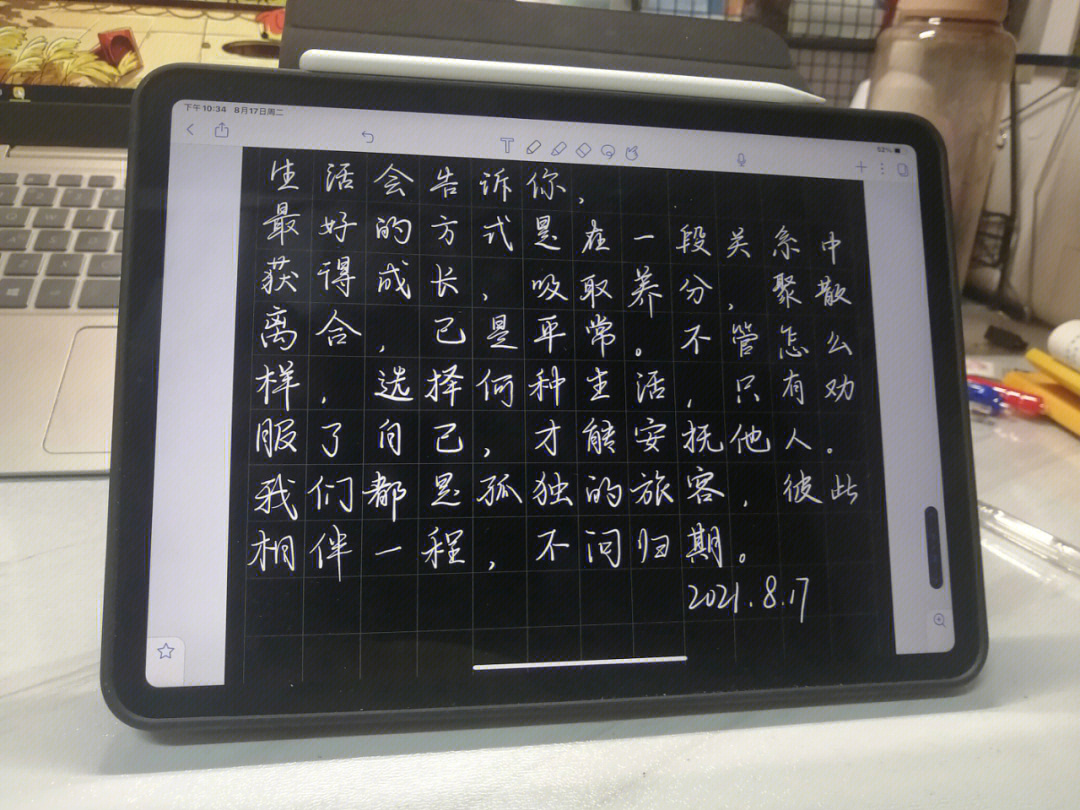 下午10:34 8月17日周二
52%
生活会告诉你，
最好的方式是在一段关系中
获得成长，吸取养分，聚散
离合，已是平常。不管怎么
样，选择何种生活，只有劝
服了自己，才能安抚他人。
我们都是孤独的旅客，彼此
相伴一程，不问归期。
2021.8.17